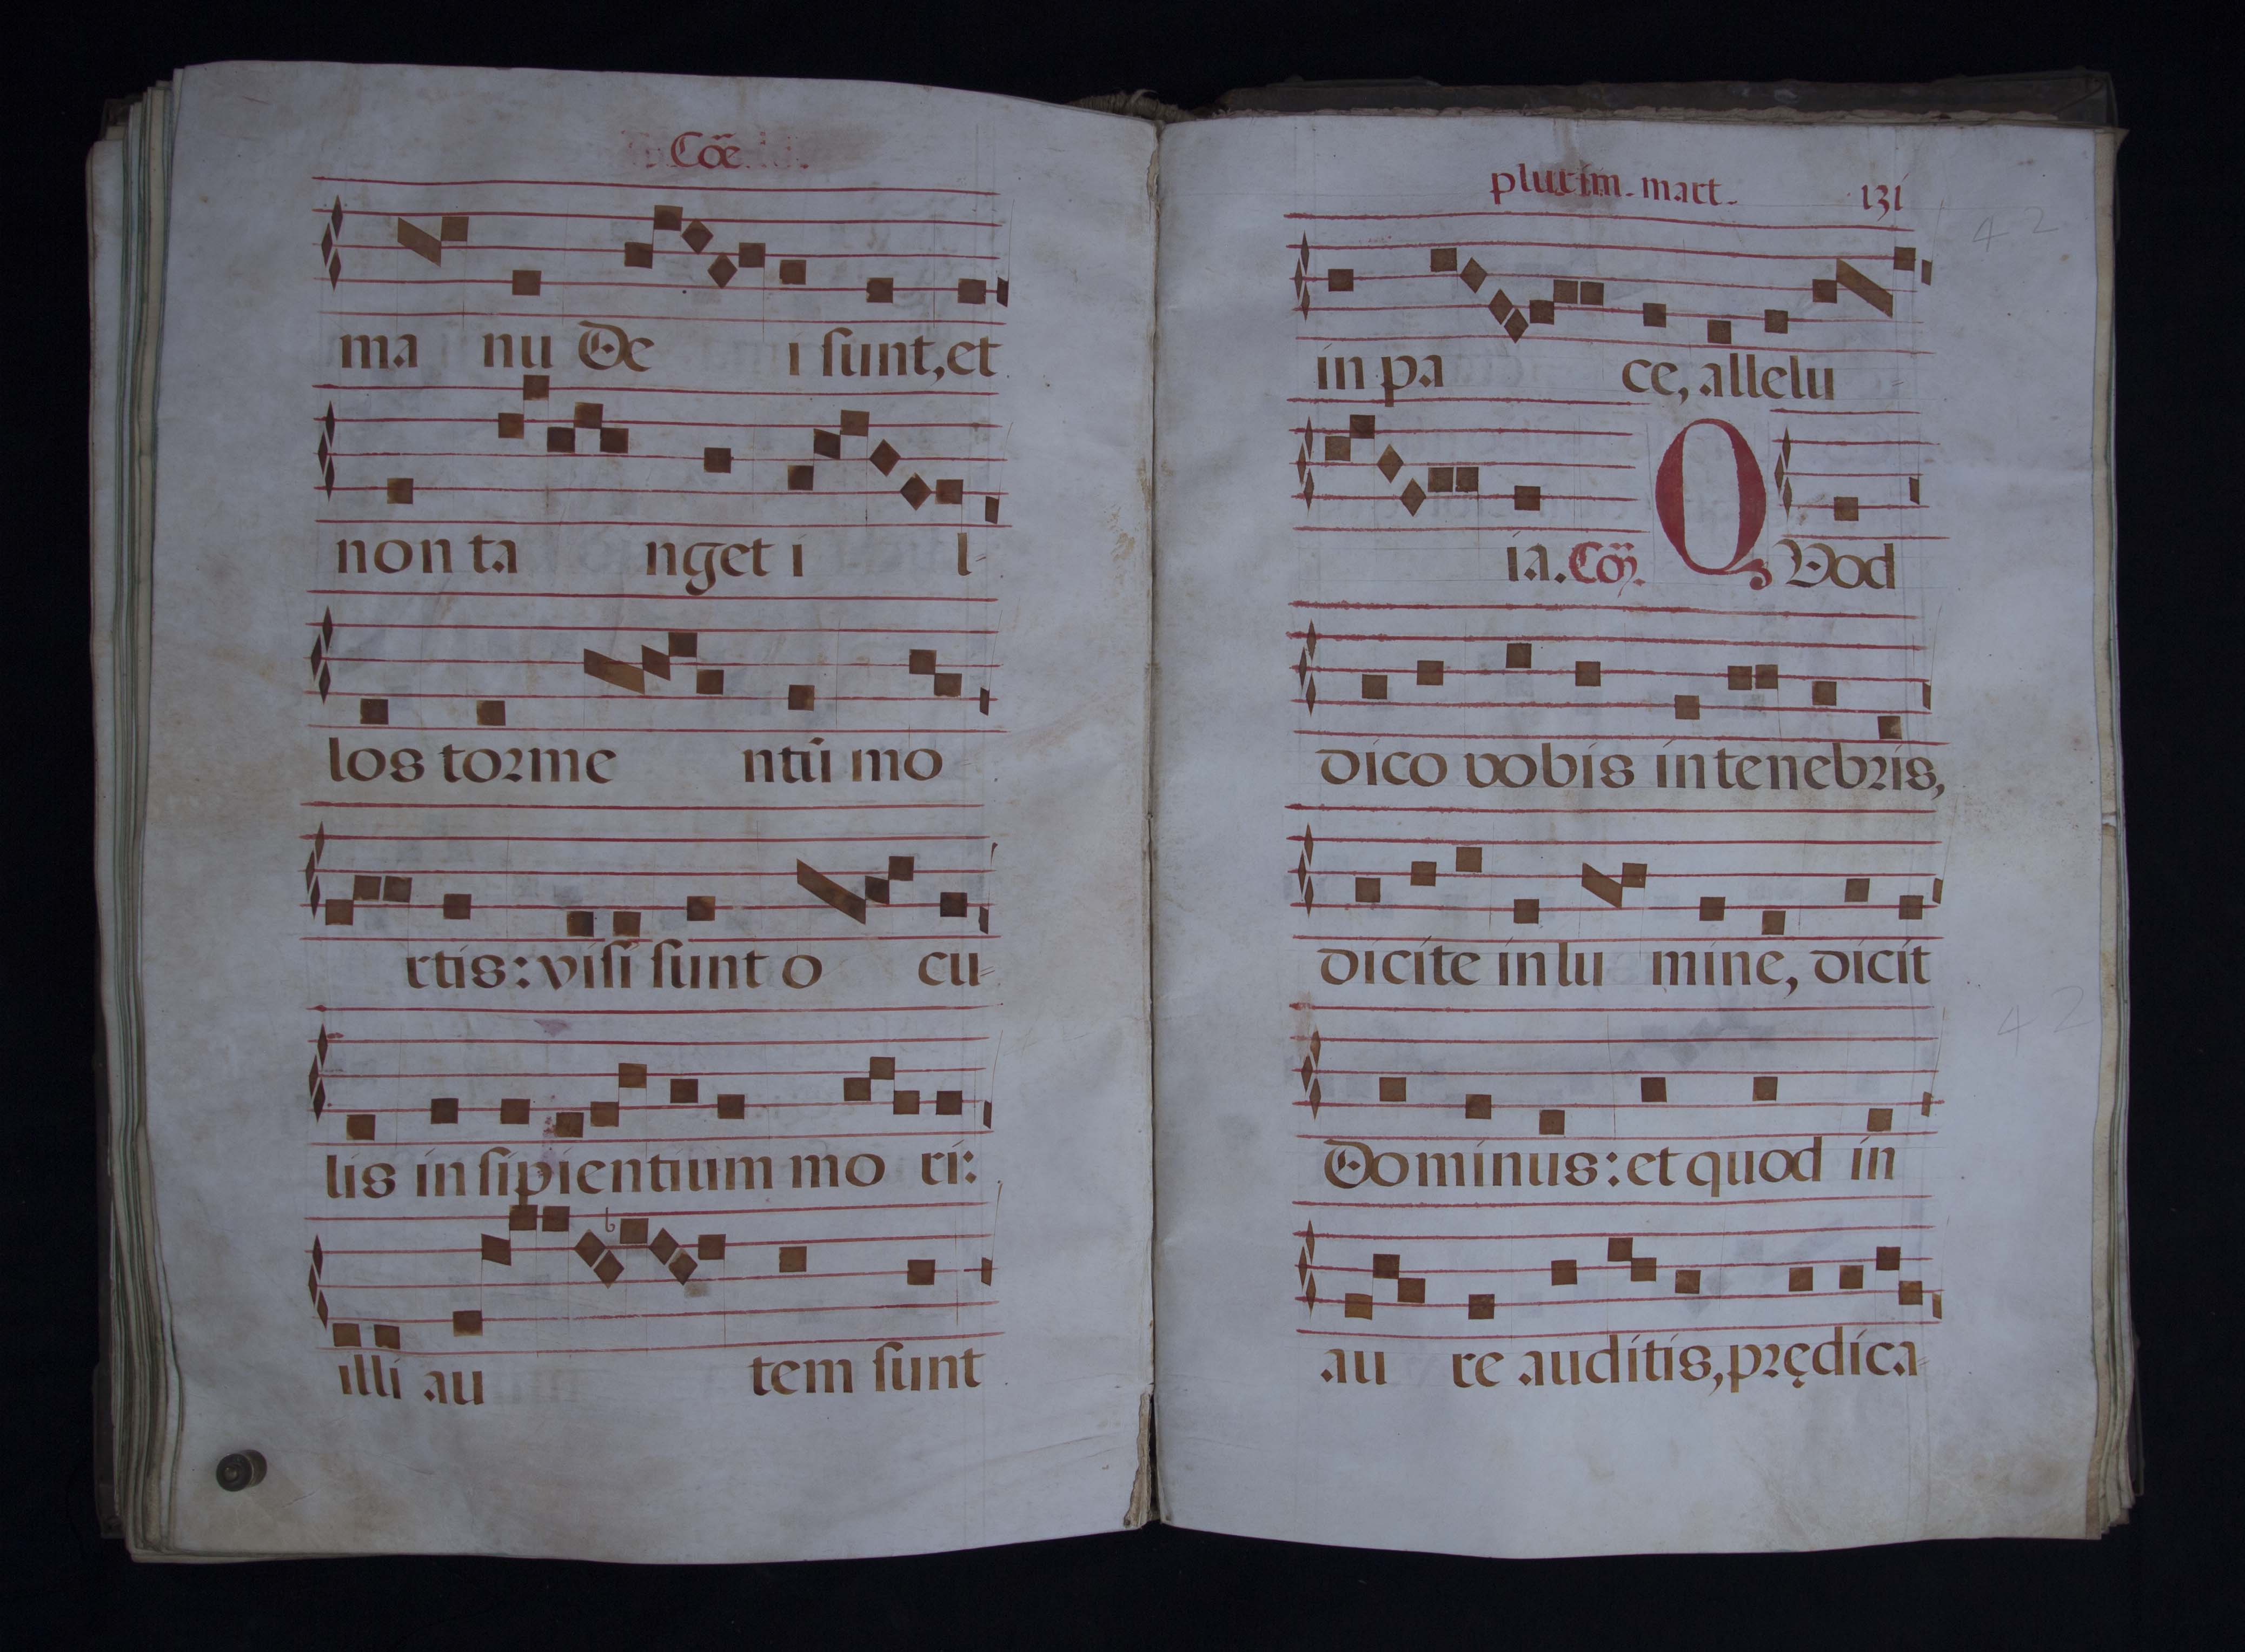 Cōe
ma nu De i sunt, et
non ta nget i l-
los torme ntū mo
rtis: visi sunt o cu-
lis insipientium mo ri:
illi au tem sunt
plurim. mart. 131
42
in pa ce, allelu-
ia. Cō. QVod
dico vobis in tenebris,
dicite in lu mine, dicit
42
Dominus: et quod in
au re auditis, prędica-